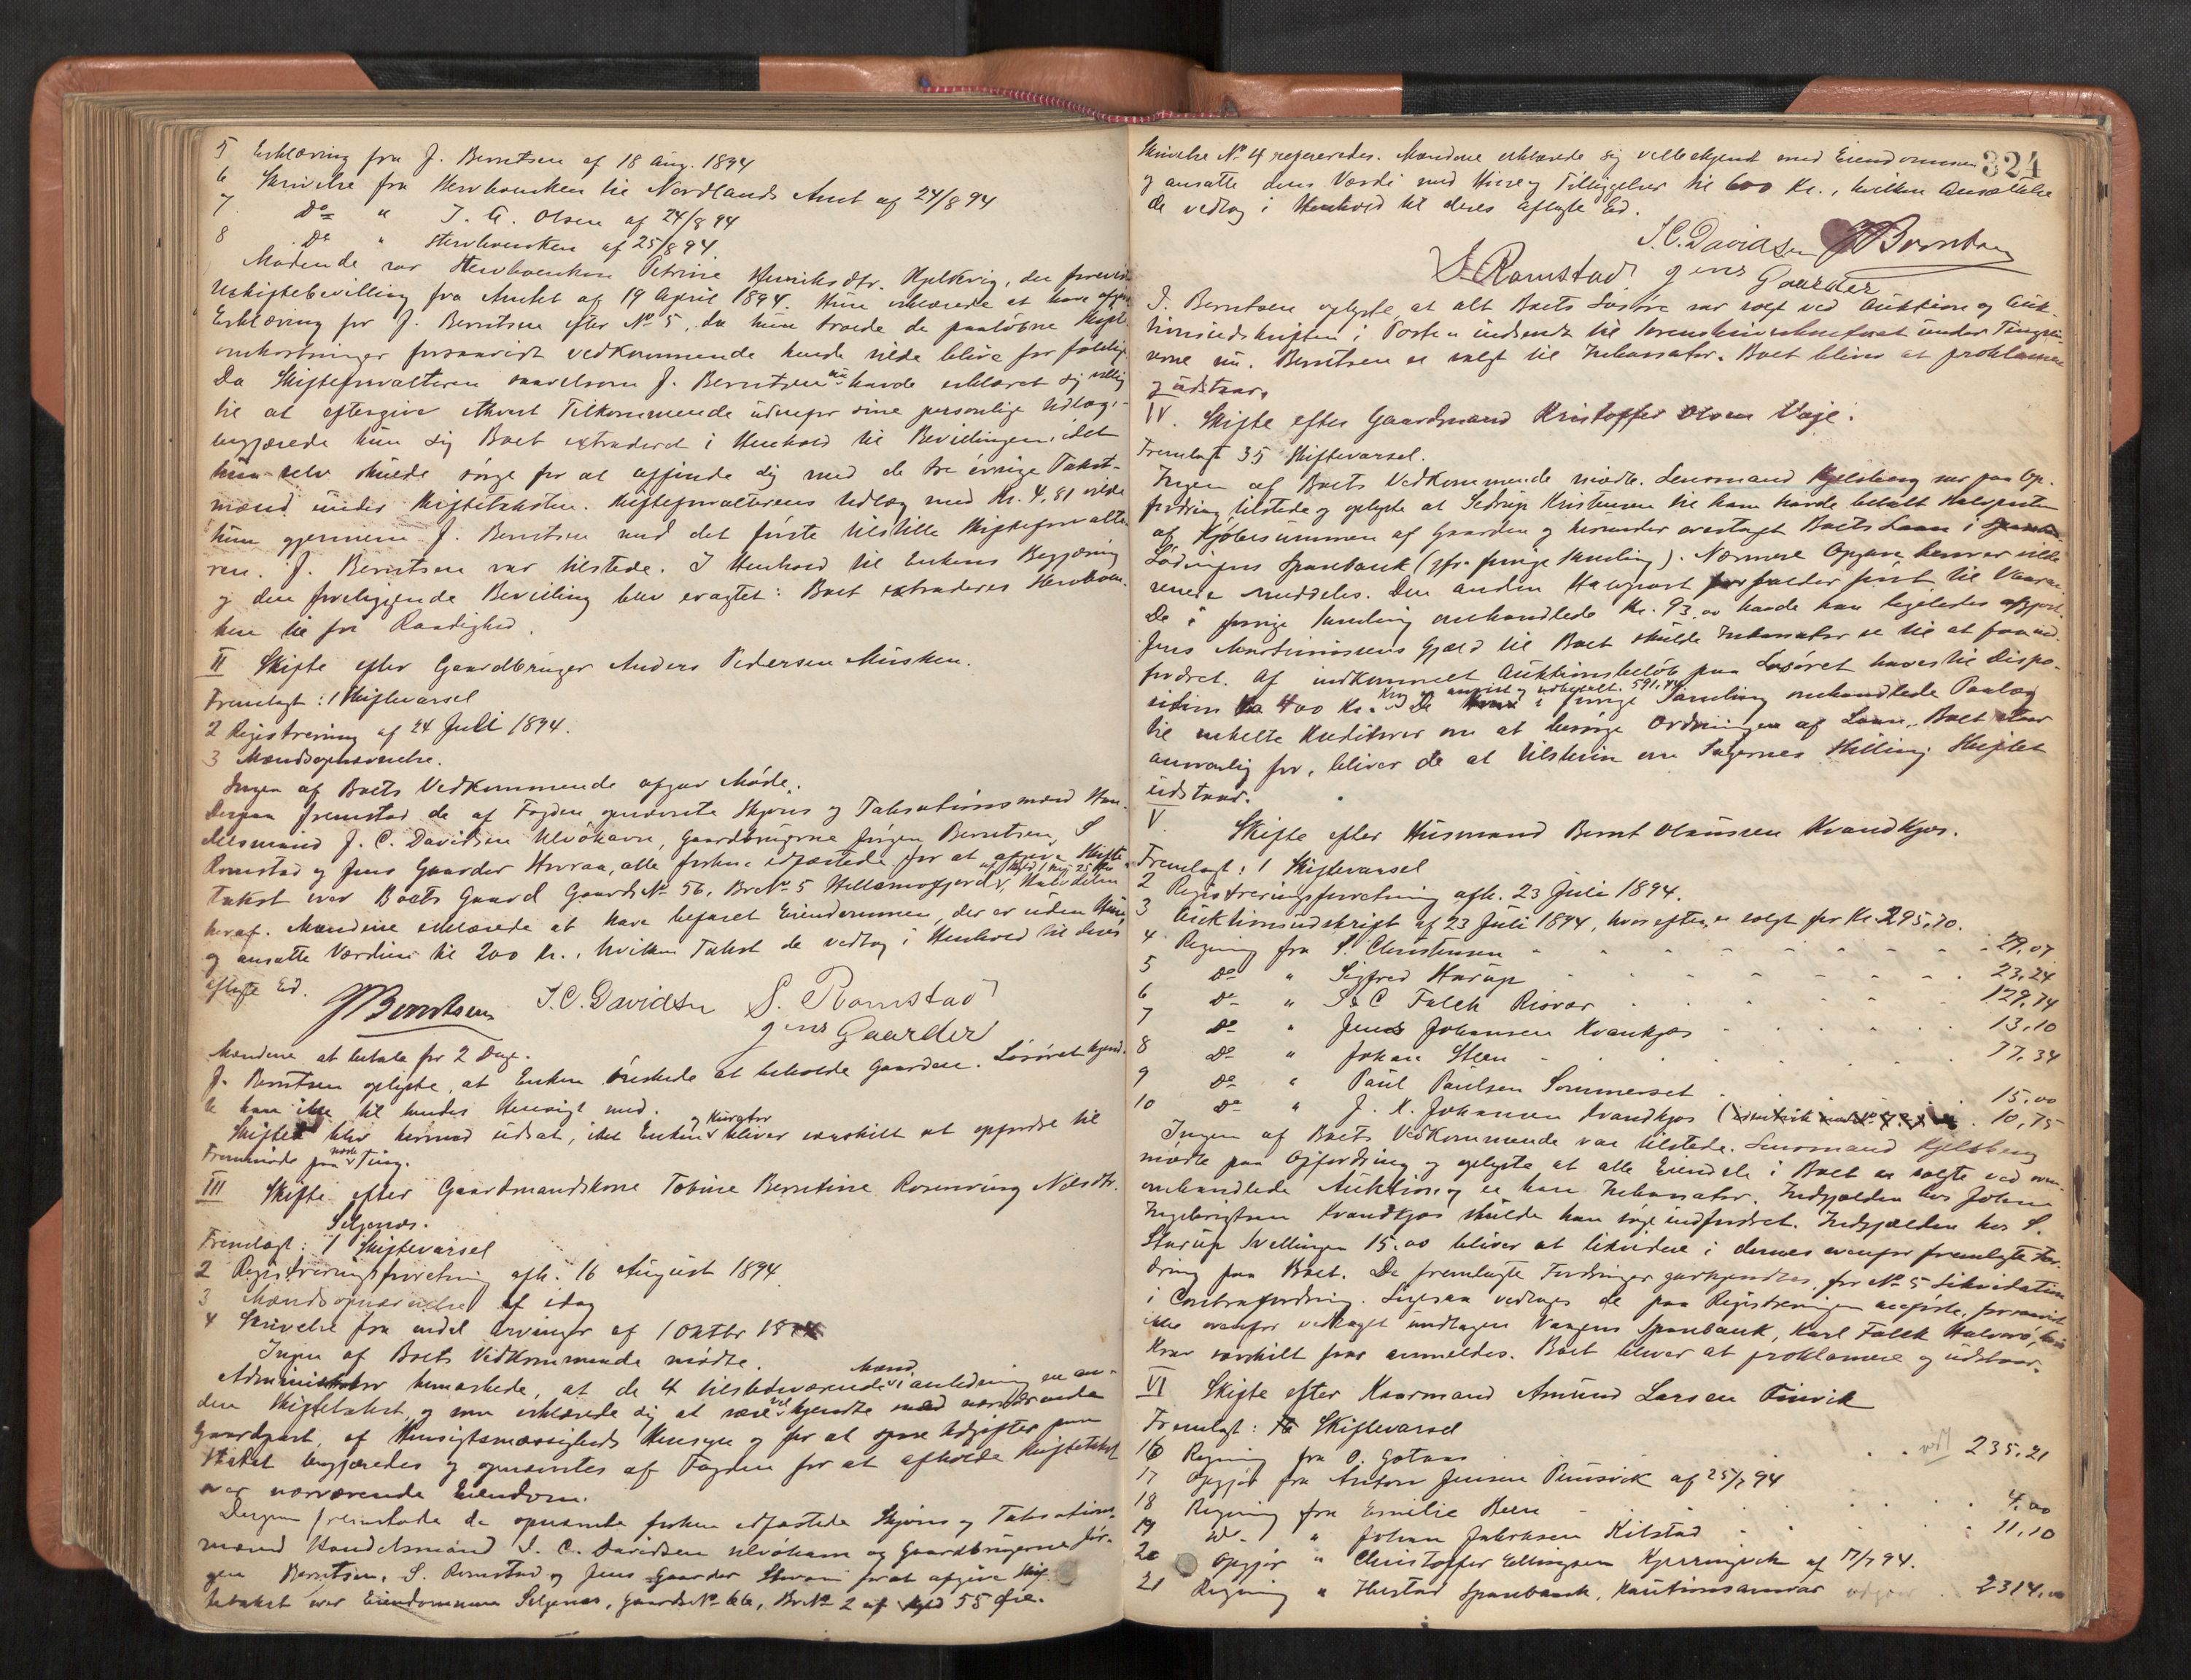 5 Erklæring fra J. Berntsen af 18 Aug. 1894
6 Skrivelse fra Skrolsvik til Nordlands Amt af 24/8 94
7 Do " J. A. Olsen af 24/8 94
8 Do " af 25/8 94.
Mødende var Petrine Henriksdtr. Hjelkvig, der foreviste
Uskiftebevilling fra Amtet af 19 April 1894. Hun erklærede at have afgivet
Erklæring for J. Berntsen efter No 5, da hun troede de paaløbne Skifte-
omkostninger forsaavidt vedkommende hende vilde blive for
Da Skifteforvalteren saavelsom J. Berntsen nu havde erklæret sig villig
til at eftergive ethvert Tilkommende udenfor sine personlige Udlæg,
begjærede hun sig Boet extraderet i Henhold til Bevillingen, idet
hun selv skulde sørge for at affinde sig med de tre øvrige Takst-
mænd under Skiftetaksten. Skifteforvalterens Udlæg med Kr. 4,81 vilde
hun gjennem J. Berntsen med det første tilstille Skifteforvalte-
ren. J. Berntsen var tilstede. I Henhold til Enkens Begjæring
og den foreliggende Bevilling blev eragtet: Boet extraderes
til fri Raadighed.
II Skifte efter Gaardbruger Anders Pedersen Musken.
Fremlagt: 1 Skiftevarsel
2 Registrering af 24 Juli 1894.
3 Mændsopnævnelse.
Ingen af Boets Vedkommende afgav Møde.
Derpaa fremstod de af Fogden opnævnte Skjøns og Taksationsmænd Han-
delsmand J. C. Davidsen Ulvøhavn, Gaardbrugerne Jørgen Berntsen, S
Romstad og Jens Gaarder Storaa, alle forhen edfæstede for at afgive Skifte-
takst over Boets Gaard Gaards No 56, Br No 5 Hellemofjord, Halvdelen
heraf. Mændene erklærede at have befaret Eiendommen, der er uden Huse
og ansatte Værdien til 200 Kr., hvilken Takst de vedtog i Henhold til deres
aflagte Ed.
JBerntsen J.C. Davidsen S. Romstad
Jens Gaarder
Mændene at betale for 2 Dage.
J. Berntsen oplyste, at Enken ønskede at beholde Gaarden. Løsøret kjend-
te han ikke til hendes Hensigt med.
Skiftet blev hermed udsat, idet Enken og Kurator bliver særskilt at opfordre til
Fremmøde paa næste Ting.
III Skifte efter Gaardmandskone Tobine Berntine Rosenving Nilsdtr.
Seljenes.
Fremlagt: 1 Skiftevarsel
2 Registreringsforretning afh. 16 August 1894
3 Mændsopnævnelse af idag
4 Skrivelse fra endel Arvinger af 1 Oktbr 1894
Ingen af Boets Vedkommende mødte.
Administrator bemærkede, at de 4 tilstedeværende Mænd i anledning en an-
den Skiftetakst, og som erklærede sig at være vel kjendte med nærværende
Gaardpart, af Hensigtsmæssigheds Hensyn og for at spare Udgifter paa
Stedet begjæredes og opnævntes af Fogden for at afholde Skiftetakst
over nærværende Eiendom.
Derpaa fremstode de opnævnte forhen edfæstede Skjøns og Taksations-
mænd Handelsmand J. C. Davidsen Ulvøhavn og Gaardbrugerne Jør-
gen Berntsen, S. Romstad og Jens Gaarder Storaa for at afgive Skif-
tetakst over Eiendommen Seljenes, Gaards No 66, Br No 2 af Skyld 55 Øre.
324
Skrivelse No 4 refereredes. Mændene erklærede sig velbekjendt med Eiendommen
og ansatte dens Værdi med Huse og Tilliggelser til 600 Kr., hvilken Ansættelse
de vedtog i Henhold til deres aflagte Ed.
J.C. Davidsen JBerntsen
S. Romstad Jens Gaarder
J. Berntsen oplyste, at alt Boets Løsøre var solgt ved Auktion og Auk-
tionsudskriften i Posten indsendt til Sorenskriverkontoret under Tingrei-
serne nu. Berntsen er valgt til Inkassator. Boet bliver at proklamere
og udstaar.
IV. Skifte efter Gaardmand Kristoffer Olsen Vaje.
Fremlagt 35 Skiftevarsel.
Ingen af Boets Vedkommende mødte. Lensmand Kjelsberg var paa Op-
fordring tilstede og oplyste at Sedrup Kristensen til ham havde betalt Halvparten
af Kjøbesummen af Gaarden og herunder overtaget Boets Laan i
Lødingens Sparebank (jfr. forrige Samling). Nærmere Opgave herover vilde
senere meddeles. Den anden Halvpart forfalder først til Vaaren.
De i forrige Samling omhandlede Kr. 93,00 havde han ligeledes afgjort.
Jens Martinussens Gjæld til Boet skulde Inkassator se til at faa ind-
fordret. Af indkommet Auktionsbeløb paa Løsøret haves til Dispo-
sition 400 Kr. De i forrige Samling omhandlede Paalæg
til enkelte Kreditorer om at besørge Ordningen af Laan, Boet staar
ansvarlig for, bliver de at tilskrive om Sagernes Stilling. Skiftet
udstaar.
V. Skifte efter Husmand Bernt Olaussen Kvandkjos.
Fremlagt: 1 Skiftevarsel
2 Registreringsforretning afh. 23 Juli 1894.
3 Auktionsudskrift af 23 Juli 1894, hvorefter er solgt for Kr. 295,70.
4 Regning fra S. Christensen 29,07
5 Do " Sigfred Hurup 23,24
6 Do " S & C Falch Risvær 129,74
7 Do " Jens Johansen Kvankjos 13,10
8 Do " Johan Steen 77,34
9 Do " Paul Paulsen Sommerset 15,00
10 Do " J. K. Johansen Kvandkjos 10,75
Ingen af Boets Vedkommende var tilstede. Lensmand Kjelsberg
mødte paa Opfordring og oplyste, at alle Eiendele i Boet er solgte ved oven-
omhandlede Auktion og er han Inkassator. Indgjælden hos Johan
Ingebrigtsen Kvandkjos skulde han søge indfordret. Indgjælden hos S.
Sturup Svellingen 15.00 bliver at likvidere i dennes ovenfor fremlagte For-
dring paa Boet. De fremlagte Fordringer godkjendtes, for No 5 Likvidation
i Contrafordring. Ligesaa vedtages de paa Registreringen anførte, forsaavidt
ikke ovenfor vedtaget undtagen Vaagens Sparebank, Karl Falch Halvorø, hvis
Krav særskilt maa anmeldes. Boet bliver at proklamere og udstaar.
VI Skifte efter Kaarmand Amund Larsen Finvik
Fremlagt: Skiftevarsel
16 Regning fra O. Gotaas 235,21
17 Opgjør fra Anton Jensen Punsvik af 25/7 94
18 Regning fra Emilie Been 4,00
19 Do " Johan Jakobsen Kilstad 11,10
20 Opgjør " Christoffer Ellingsen Kjerringvik af 17/7 94.
21 Regning " Hustad Sparebank, Kautionsansvar 2314,00